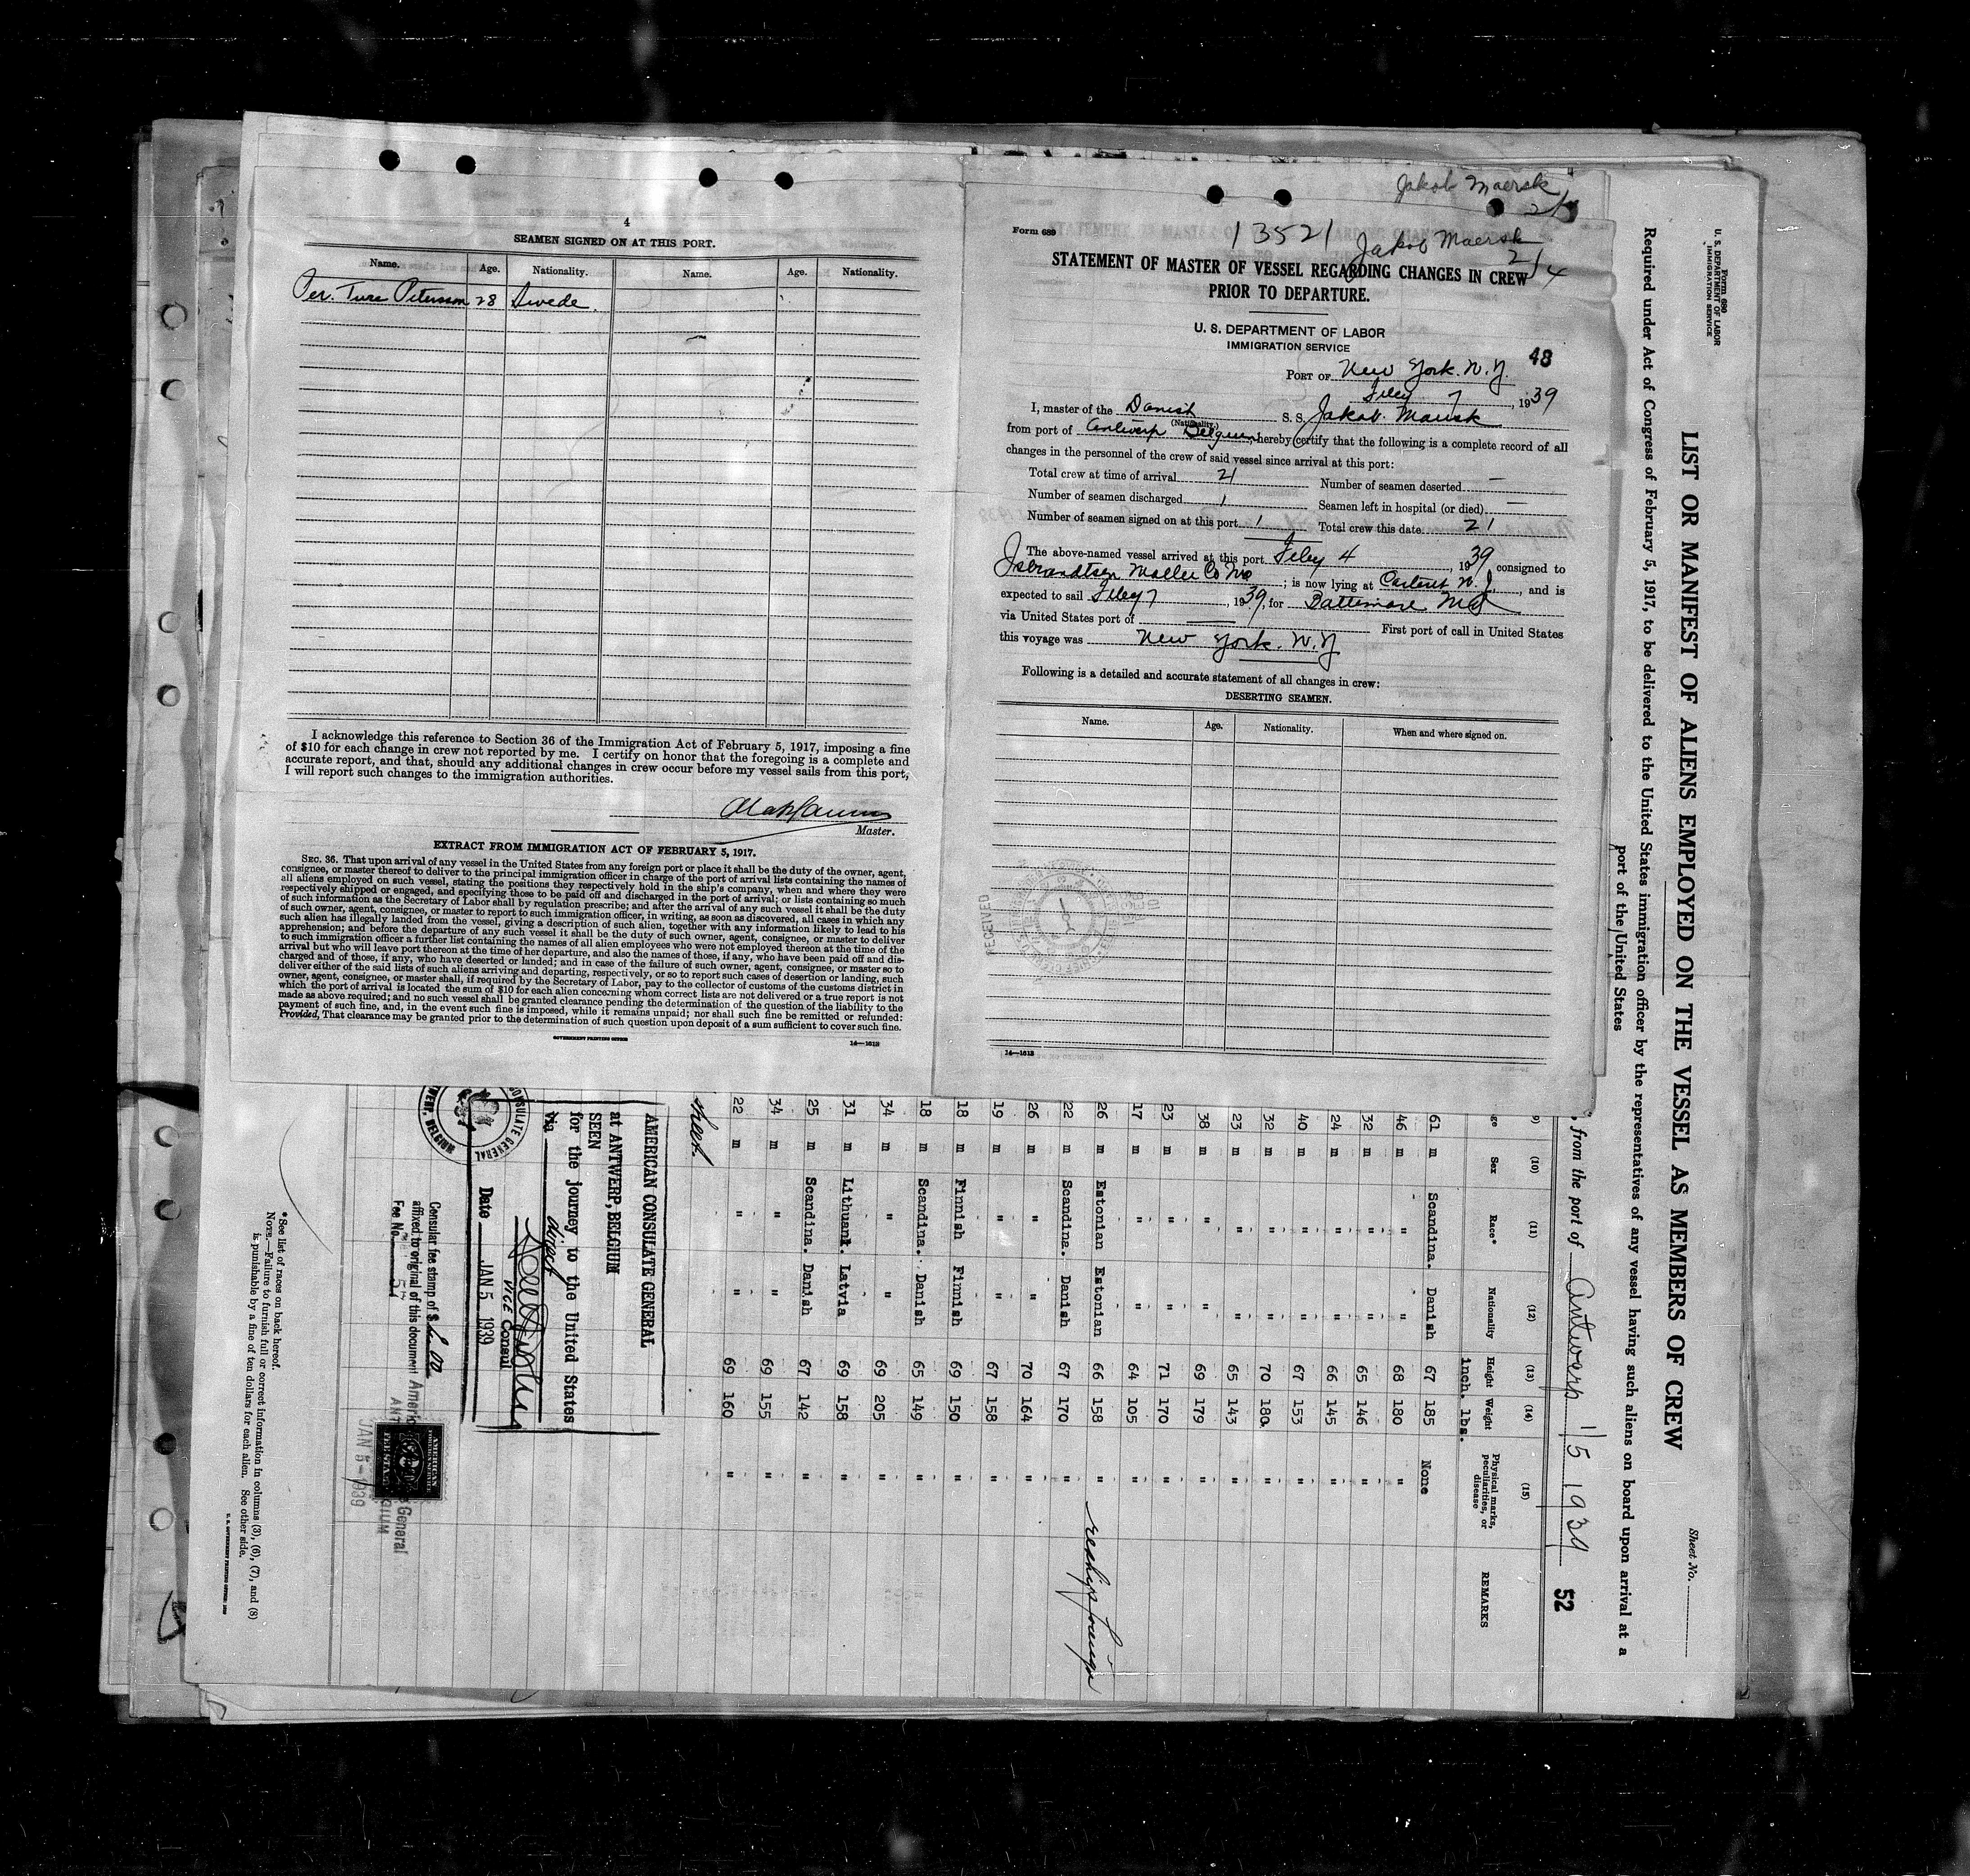 4
SEAMEN SIGNED ON AT THIS PORT.
Name. Age. Nationality. Name. Age. Nationality.
Per. Ture Peterson 28 Swede.
I acknowledge this reference to Section 36 of the Immigration Act of February 5, 1917, imposing a fine
of $10 for each change in crew not reported by me. I certify on honor that the foregoing is a complete and
accurate report, and that, should any additional changes in crew occur before my vessel sails from this port,
I will report such changes to the immigration authorities.
Master.
EXTRACT FROM IMMIGRATION ACT OF FEBRUARY 5, 1917.
SEC. 36. That upon arrival of any vessel in the United States from any foreign port or place it shall be the duty of the owner, agent,
consignee, or master thereof to deliver to the principal immigration officer in charge of the port of arrival lists containing the names of
all aliens employed on such vessel, stating the positions they respectively hold in the ship's company, when and where they were
respectively shipped or engaged, and specifying those to be paid off and discharged in the port of arrival; or lists containing so much
of such information as the Secretary of Labor shall by regulation prescribe; and after the arrival of any such vessel it shall be the duty
of such owner, agent, consignee, or master to report to such immigration officer, in writing, as soon as discovered, all cases in which any
such alien has illegally landed from the vessel, giving a description of such alien, together with any information likely to lead to his
apprehension; and before the departure of any such vessel it shall be the duty of such owner, agent, consignee, or master to deliver
to such immigration officer a further list containing the names of all alien employees who were not employed thereon at the time of the
arrival but who will leave port thereon at the time of her departure, and also the names of those, if any, who have been paid off and dis-
charged and of those, if any, who have deserted or landed; and in case of the failure of such owner, agent, consignee, or master so to
deliver either of the said lists of such aliens arriving and departing, respectively, or so to report such cases of desertion or landing, such
owner, agent, consignee, or master shall, if required by the Secretary of Labor, pay to the collector of customs of the customs district in
which the port of arrival is located the sum of $10 for each alien concerning whom correct lists are not delivered or a true report is not
made as above required; and no such vessel shall be granted clearance pending the determination of the question of the liability to the
payment of such fine, and, in the event such fine is imposed, while it remains unpaid; nor shall such fine be remitted or refunded:
Provided, That clearance may be granted prior to the determination of such question upon deposit of a sum sufficient to cover such fine.
GOVERNMENT PRINTING OFFICE
14—1613
Jakob Maersk
Form 689
13521 Jakob Maersk
2/4
STATEMENT OF MASTER OF VESSEL REGARDING CHANGES IN CREW
PRIOR TO DEPARTURE.
U. S. DEPARTMENT OF LABOR
IMMIGRATION SERVICE
48
PORT OF New York. N.Y.
Feby 7, 1939
I, master of the Danish S. S. Jakob. Maersk
(Nationality.)
from port of Antwerp Belgium, hereby certify that the following is a complete record of all
changes in the personnel of the crew of said vessel since arrival at this port:
Total crew at time of arrival 21 Number of seamen deserted —
Number of seamen discharged 1 Seamen left in hospital (or died) —
Number of seamen signed on at this port 1 Total crew this date 21
The above-named vessel arrived at this port Feby 4, 1939 consigned to
Isbrandtsen Moller Co Inc; is now lying at Carteret N.J., and is
expected to sail Feby 7, 1939, for Baltimore Md
via United States port of — First port of call in United States
this voyage was New York. N.Y
Following is a detailed and accurate statement of all changes in crew:
DESERTING SEAMEN.
Name. Age. Nationality. When and where signed on.
RECEIVED
14—1613
Form 680
U. S. DEPARTMENT OF LABOR
IMMIGRATION SERVICE
Sheet No.
LIST OR MANIFEST OF ALIENS EMPLOYED ON THE VESSEL AS MEMBERS OF CREW
Required under Act of Congress of February 5, 1917, to be delivered to the United States immigration officer by the representatives of any vessel having such aliens on board upon arrival at a
port of the United States
, from the port of Antwerp 1/5 1939 52
9) (10) (11) (12) (13) (14) (15)
ge Sex Race* Nationality Height Weight Physical marks, peculiarities, or disease REMARKS
inch. lbs.
61 m Scandina. Danish 67 185 None
46 m " " 68 180 "
32 m " " 65 146 "
24 m " " 66 145 "
40 m " " 67 153 "
32 m " " 70 180 "
23 m " " 65 143 "
38 m " " 69 179 "
23 m " " 71 170 "
17 m " " 64 105 "
26 m Estonian Estonian 66 158 " reships foreign
22 m Scandina. Danish 67 170 "
26 m " " 70 164 "
19 m " " 67 158 "
18 m Finnish Finnish 69 150 "
18 m Scandina. Danish 65 149 "
34 m " " 69 205 "
31 m Lithuani. Latvia 69 158 "
25 m Scandina. Danish 67 142 "
34 m " " 69 155 "
22 m " " 69 160 "
sheet.
AMERICAN CONSULATE GENERAL
at ANTWERP, BELGIUM
SEEN
for the journey to the United States
via direct
Vice Consul
Date JAN 5 1939
Consular fee stamp of $
affixed to original of this document
Fee No. 54
JAN 5-1939
*See list of races on back hereof.
NOTE.—Failure to furnish full or correct information in columns (3), (6), (7), and (8)
is punishable by a fine of ten dollars for each alien. See other side.